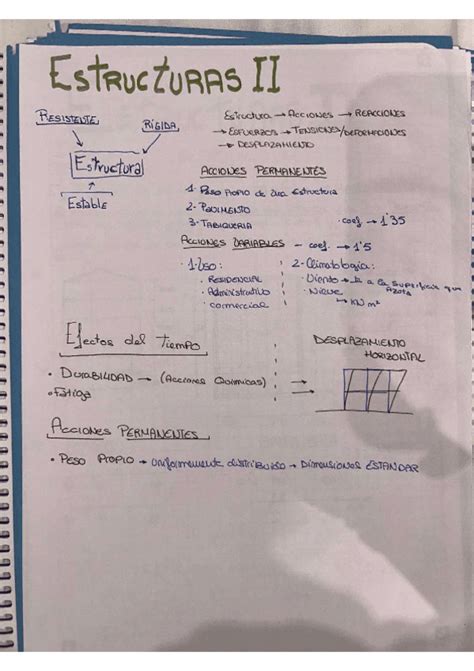 ESTRUCTURAS II
RESISTENTE RÍGIDA
Estructura
Estable
Estructura → ACCIONES → REACCIONES
→ ESFUERZOS → TENSIONES/DEFORMACIONES
→ DESPLAZAMIENTO
ACCIONES PERMANENTES
1- Peso Propio de una Estructura
2- PAVIMENTO
3- TABIQUERIA · coef → 1'35
ACCIONES VARIABLES - coef. → 1'5
· 1- Uso:
· RESIDENCIAL
· Administrativo
· comercial
2- Climatología:
· Viento → la a la superficie que
azota
· Nieve
→ KN m²
Efectos del Tiempo
· DURABILIDAD → (Acciones Químicas)
· Fatiga
DESPLAZAMIENTO
HORIZONTAL
ACCIONES PERMANENTES
· PESO PROPIO → uniformemente distribuido → Dimensiones ESTANDAR